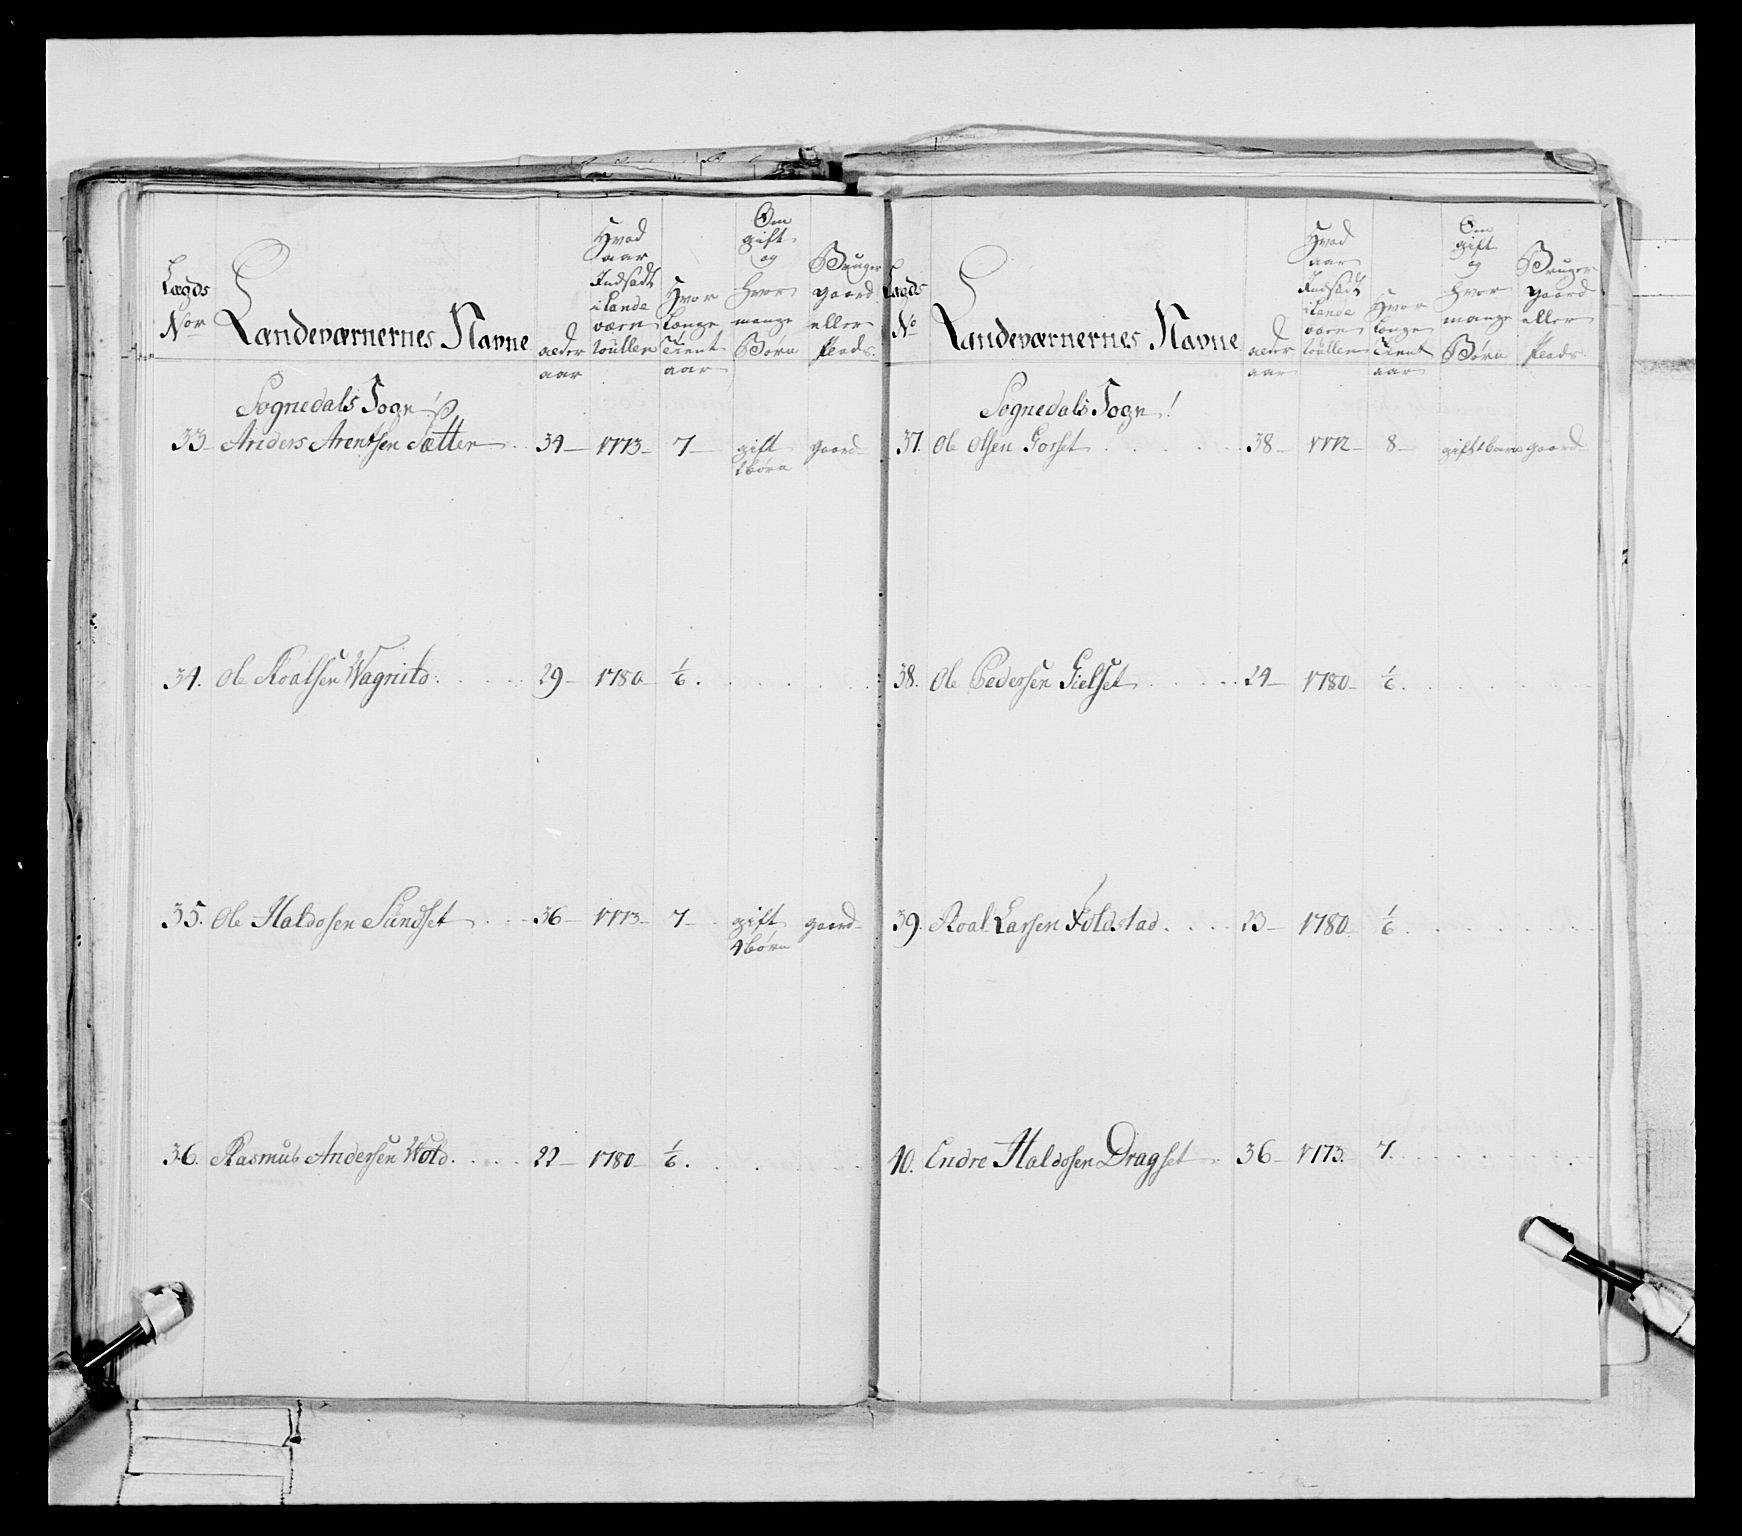 Lægds Nor
Landeværnernes Navne
alder aar
Hvad aar Indsadt i Lande værn Roullen
Hvor Længe Tient aar
Om gift og hvor mange Børn
Bruger gaard eller Plads
Sognedals Sogn!
33 Anders Arentsen Sætter 34 1773 7 gift børn gaard
34. Ole Roalsen Wagnild 29 1780 1/6
35. Ole Haldosen Sundset 36 1773 7 gift 4 børn gaard
36. Rasmus Andersen Wold 22 1780 1/6
Lægds No
Landeværnernes Navne
alder aar
Hvad aar Indsadt i Lande værn Roullen
Hvor Længe Tient aar
Om gift og hvor mange Børn
Bruger gaard eller Plads
Sognedals Sogn!
37. Ole Olsen Gorset 38 1772 8 gift 1 barn gaard
38. Ole Pedersen Gielset 24 1780 1/6
39. Roal Larsen Foldstad 23 1780 1/6
40. Endre Haldosen Dragset 36 1773 7